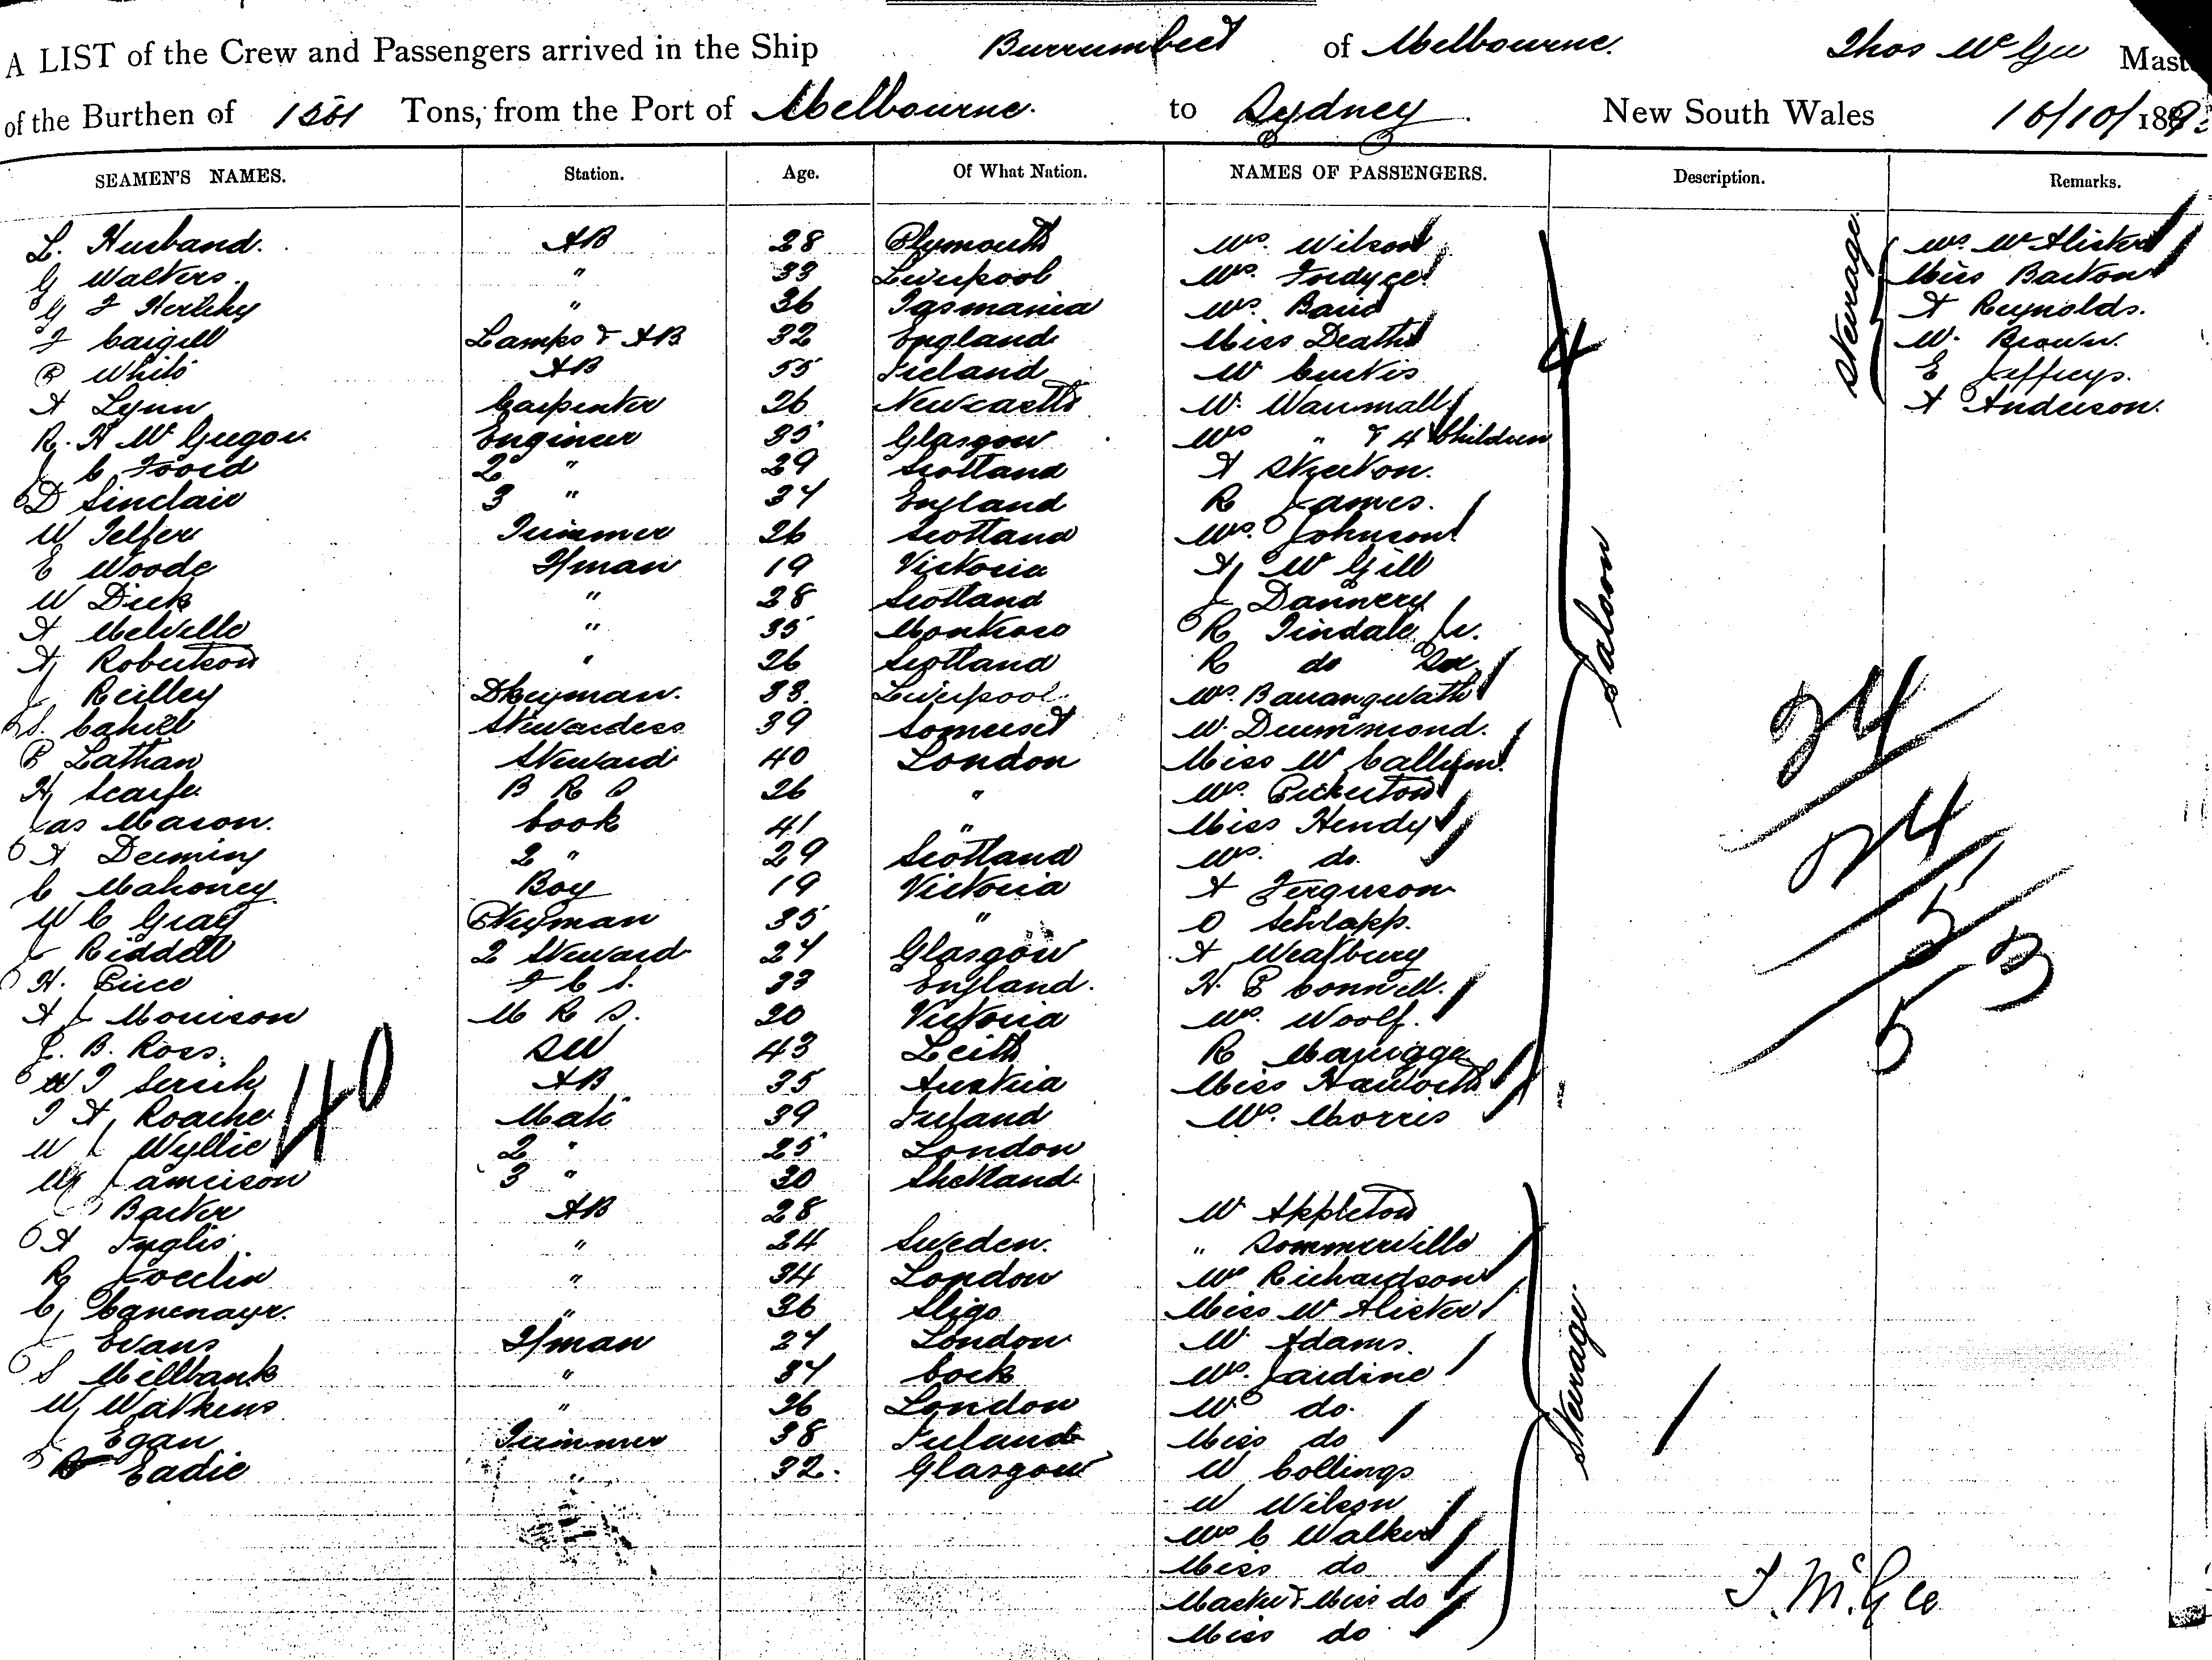 A LIST of the Crew and Passengers arrived in the Ship Burrumbeet of Melbourne. Thos McGee Mast
of the Burthen of Tons, from the Port of Melbourne. to Sydney. New South Wales 16/10/189
SEAMEN'S NAMES. Station. Age. Of What Nation. NAMES OF PASSENGERS. Description. Remarks.
L. Husband. AB 28 Plymouth Mrs. Wilson Mrs. McAlister
G Walters. " 33 Liverpool Mrs. Fordyce Miss Barton
G F Herlihy " 36 Tasmania Mrs. Baird A Reynolds.
F Cargill Lamps & AB 32 England Miss Death W. Brown.
P White AB 55 Ireland Mr Curtis E Jeffreys.
A Lynn Carpenter 26 Newcastle Mr. A Anderson.
R. H McGregor Engineer 35 Glasgow Mrs " & 4 Children
J C Foord 2 " 29 Scotland A Skeeton.
D Sinclair 3 " 34 England R James.
W Telfer Trimmer 26 Scotland Mrs. Johnson
E Woode F/man 19 Victoria A McGill
W Dick " 28 Scotland J Dannery
A Melville " 35 Montrose R Tindale Jr.
A Robertson " 26 Scotland R do Sr.
J Reilley Dkeyman. 33 Liverpool. Mrs.
S. Cahill Stewardess 39 Somerset Mr. Drummond.
P Lathan Steward 40 London Miss McCallum
H Scarfe B R S 26 " Mrs. Pickerton
Jas Mason. Cook 41 " Miss Hendy
A Deeming 2 " 29 Scotland Mrs. do
C Mahoney Boy 19 Victoria A Ferguson
W C Gray P'keyman 35 " O Schlapp.
J Riddell 2 Steward 24 Glasgow A Weatbury
H. Price F C S. 33 England. H. P Connell.
A J Morrison M R S. 20 Victoria Mrs. Woolf.
J. B. Ross SW 43 Leith R
AB 35 Austria Miss Haworth
T A Roache Mate 39 Ireland Mrs. Morris
W J Wyllie 2 " 25 London
W Jameison 3 " 30 Shetland
J Barker AB 28 Mr Appleton
A Inglis " 24 Sweden. " Sommerville
R Jocelin " 34 London Mrs Richardson
C " 36 Sligo Miss McAlister
J Evans F/man 24 London Mr Adams.
S Millbank " 34 Cork Mrs. Jardine
W Watkins " 26 London Mr do.
J Egan Trimmer 38 Ireland Miss do
Eadie " 32. Glasgow W Collings
W Wilson
Mrs C Walker
Miss do
Master & Miss do
Miss do
Saloon
Steerage
Steerage
40
4
24
24
5
53
T. McGee